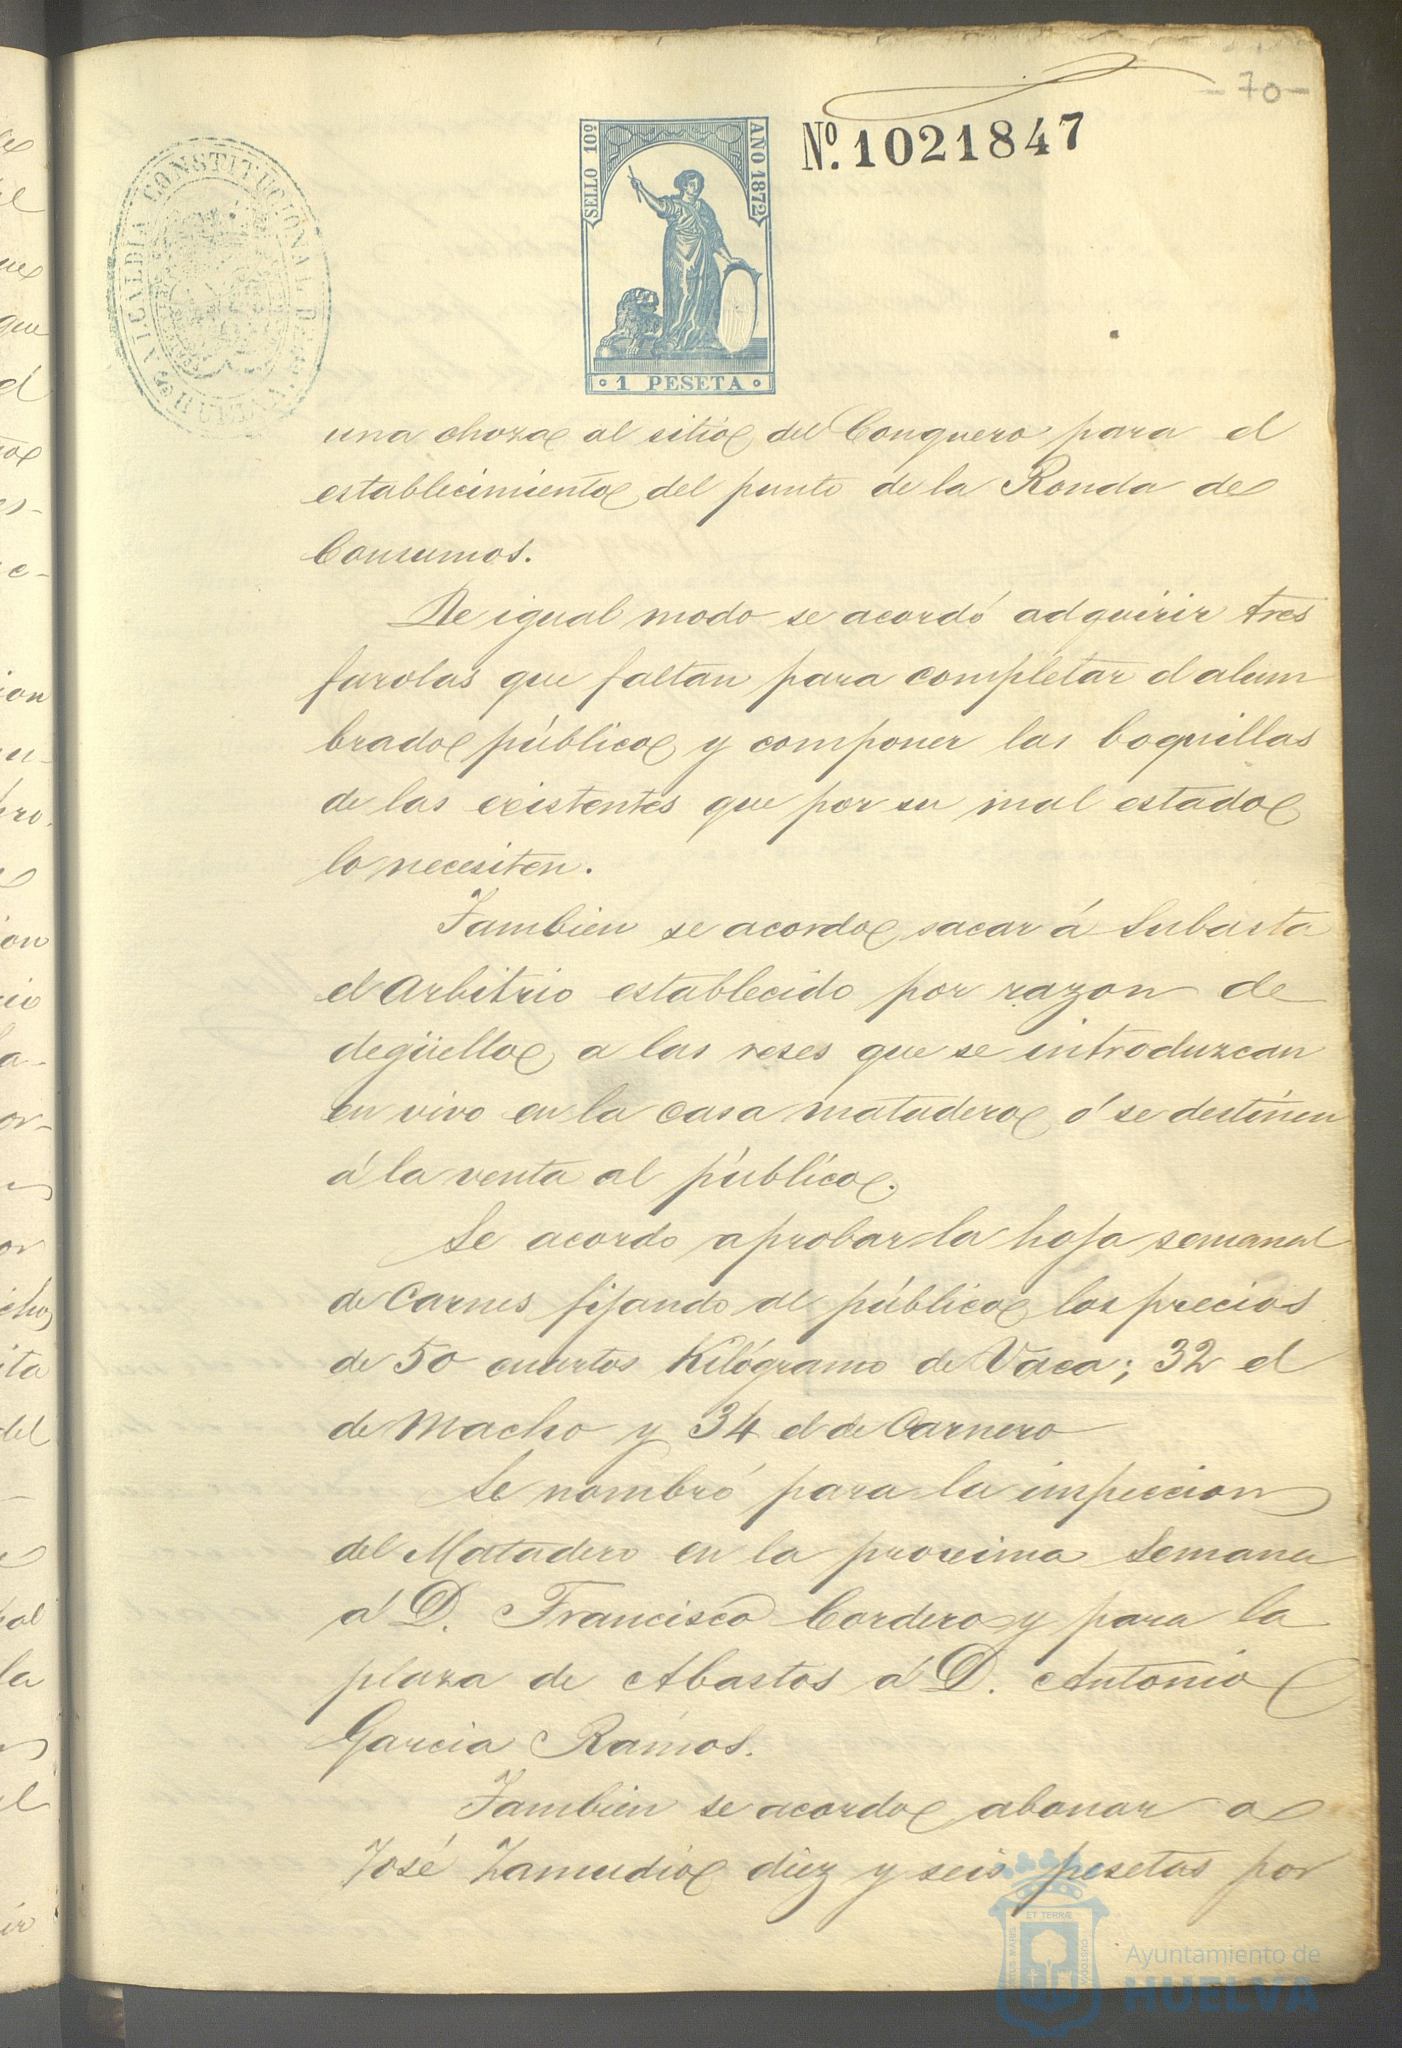 -70-
SELLO 10º
AÑO 1872
Nº. 1021847
1 PESETA
ALCALDIA CONSTITUCIONAL DE HUELVA
una choza al sitio del Conquero para el
establecimiento del punto de la Ronda de
Consumos.
De igual modo se acordó adquirir tres
farolas que faltan para completar el alum
brado público y componer las boquillas
de las existentes que por su mal estado
lo necesiten.
Tambien se acordo sacar á Subasta
el Arbitrio establecido por razon de
degüello a las reses que se introduzcan
en vivo en la casa matadero ó se destinen
á la venta al público.
Se acordo aprobar la hoja semanal
de Carnes fijando al público los precios
de 50 cuartos Kilógramo de Vaca; 32 el
de Macho y 34 el de Carnero
Se nombró para la inspeccion
del Matadero en la proxima Semana
á D. Francisco Cordero y para la
plaza de Abastos á D. Antonio
Garcia Ramos.
Tambien se acordo abonar a
José Zamudio diez y seis pesetas por
Ayuntamiento de
HUELVA